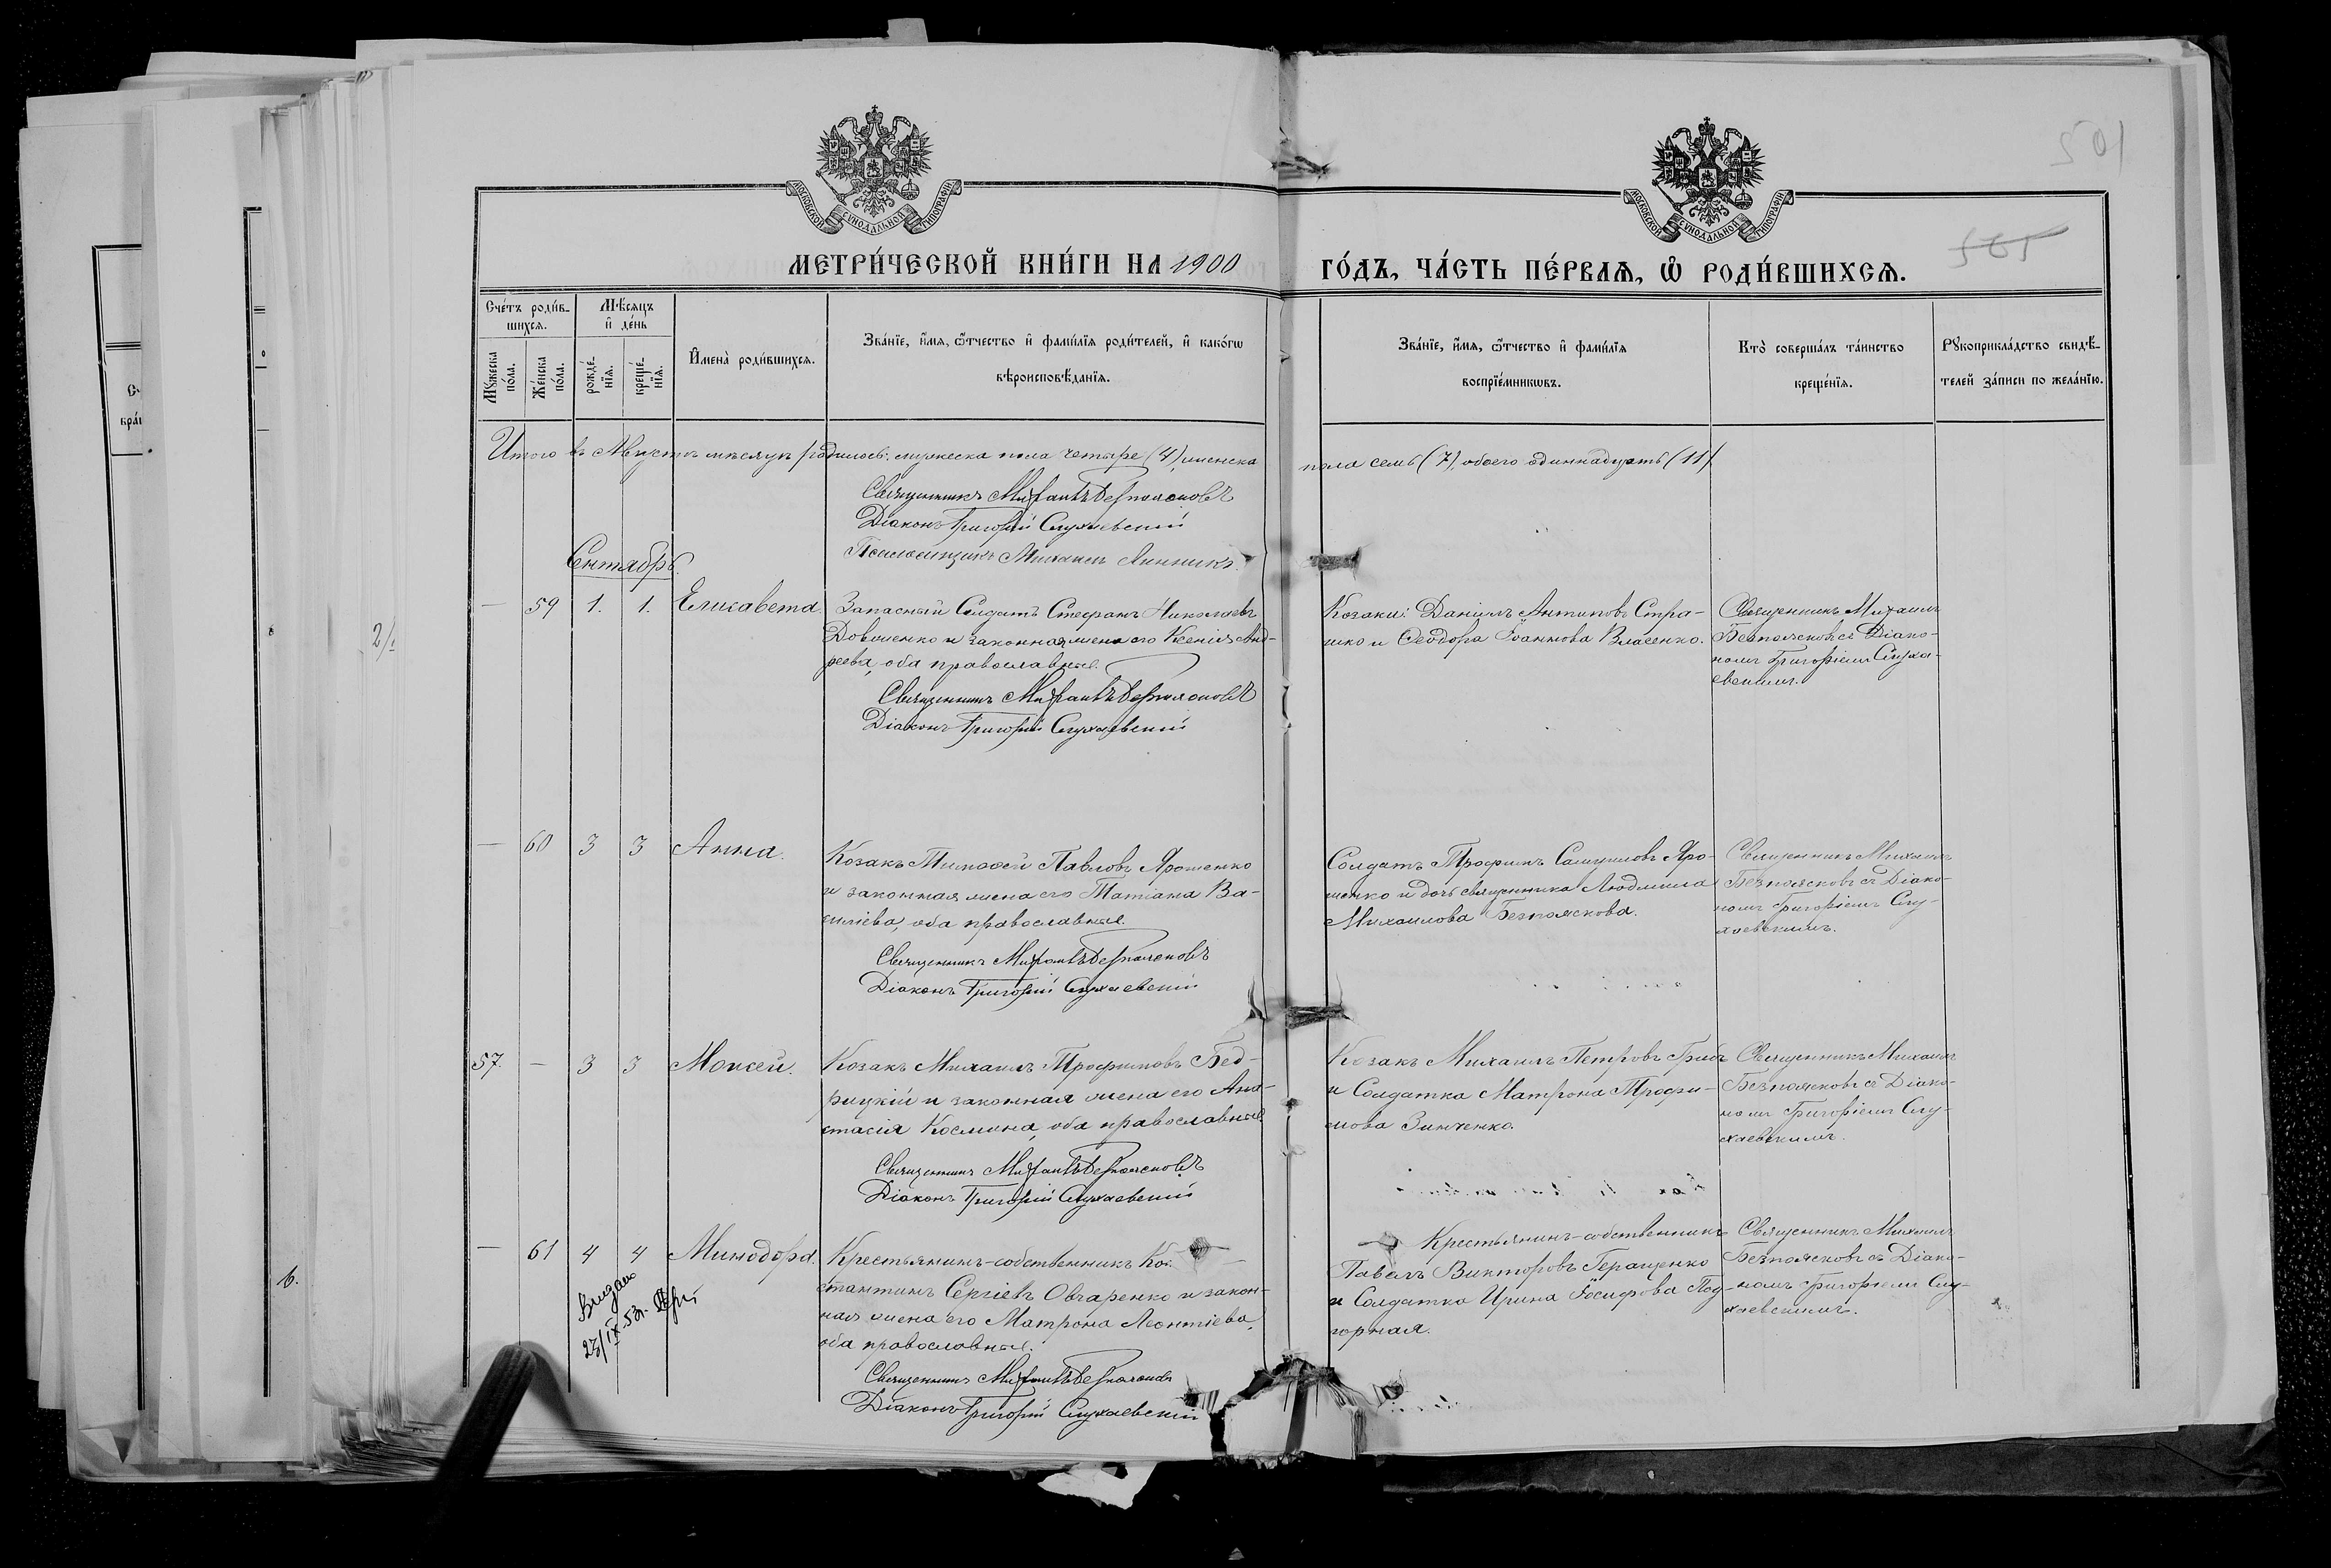 501
505
МОСКОВСКОЙ СѴНОДАЛЬНОЙ ТИПОГРАФІИ
МОСКОВСКОЙ СѴНОДАЛЬНОЙ ТИПОГРАФІИ
МЕТРИ́ЧЕСКОЙ КНИ́ГИ НА 1900 ГО́ДЪ, ЧА́СТЬ ПЕ́РВАѦ, Ѡ҆ РОДИ́ВШИХСѦ.
Сче́тъ роди́в-
шихсѧ.
Мꙋ́жеска по́ла.
Же́нска по́ла.
Мѣ́сѧцъ
и҆ де́нь
рожде́-
нїѧ.
креще́-
нїѧ.
И҆мена̀ роди́вшихсѧ.
Зва́нїе, и҆́мѧ, ѻ҆́тчество и҆ фами́лїѧ роди́телей, и҆ како́гѡ
вѣроисповѣ́данїѧ.
Зва́нїе, и҆́мѧ, ѻ҆́тчество и҆ фами́лїѧ
воспрїе́мникѡвъ.
Кто̀ соверша́лъ та́инство
креще́нїѧ.
Рꙋкоприкла́дство свидѣ́-
телей за́писи по жела́нїю.
Итого въ Августѣ мѣсяцѣ родилось: мужеска пола четыре (4), женска пола семь (7), обоего одиннадцать (11)
Священникъ Михаилъ Безпоясковъ
Діаконъ Григорій Слухаевскій
Псаломщикъ Михаилъ
Сентябрь.
— 59 1. 1. Елисавета.
Запасный Солдатъ Стефанъ Николаевъ
Довженко и законная жена его Ксенія Анд-
реева, оба православные.
Священникъ Михаилъ Безпоясковъ
Діаконъ Григорій Слухаевскій
Козаки: Даніилъ Антиповъ Стра-
шко и Ѳеодора Іоаннова Власенко.
Священникъ Михаилъ
Безпоясковъ съ Діако-
номъ Григоріемъ Слуха-
евскимъ.
— 60 3 3 Анна.
Козакъ Тимоѳей Павловъ Ярошенко
и законная жена его Татіана Ва-
силіева, оба православные.
Священникъ Михаилъ Безпоясковъ
Діаконъ Григорій Слухаевскій
Солдатъ Трофимъ Самуиловъ Яро-
шенко и дочь священника Людмила
Михаилова Безпояскова.
Священникъ Михаилъ
Безпоясковъ съ Діако-
номъ Григоріемъ Слу-
хаевскимъ.
57. — 3 3 Моисей.
Козакъ Михаилъ Трофимовъ Бед-
рицкій и законная жена его Ана-
стасія Космина, оба православные.
Священникъ Михаилъ Безпоясковъ
Діаконъ Григорій Слухаевскій
Козакъ Михаилъ Петровъ Грибъ
и Солдатка Матрона Трофи-
мова Зинченко.
Священникъ Михаилъ
Безпоясковъ съ Діако-
номъ Григоріемъ Слу-
хаевскимъ.
— 61 4 4 Минодора.
Видано
23/IX-53г.
Крестьянинъ-собственникъ Кон-
стантинъ Сергіевъ Овчаренко и закон-
ная жена его Матрона Леонтіева,
оба православные.
Священникъ Михаилъ Безпоясковъ
Діаконъ Григорій Слухаевскій
Крестьянинъ-собственникъ
Павелъ Викторовъ Геращенко
и Солдатка Ирина Іосифова Под-
горная.
Священникъ Михаилъ
Безпоясковъ съ Діако-
номъ Григоріемъ Слу-
хаевскимъ.